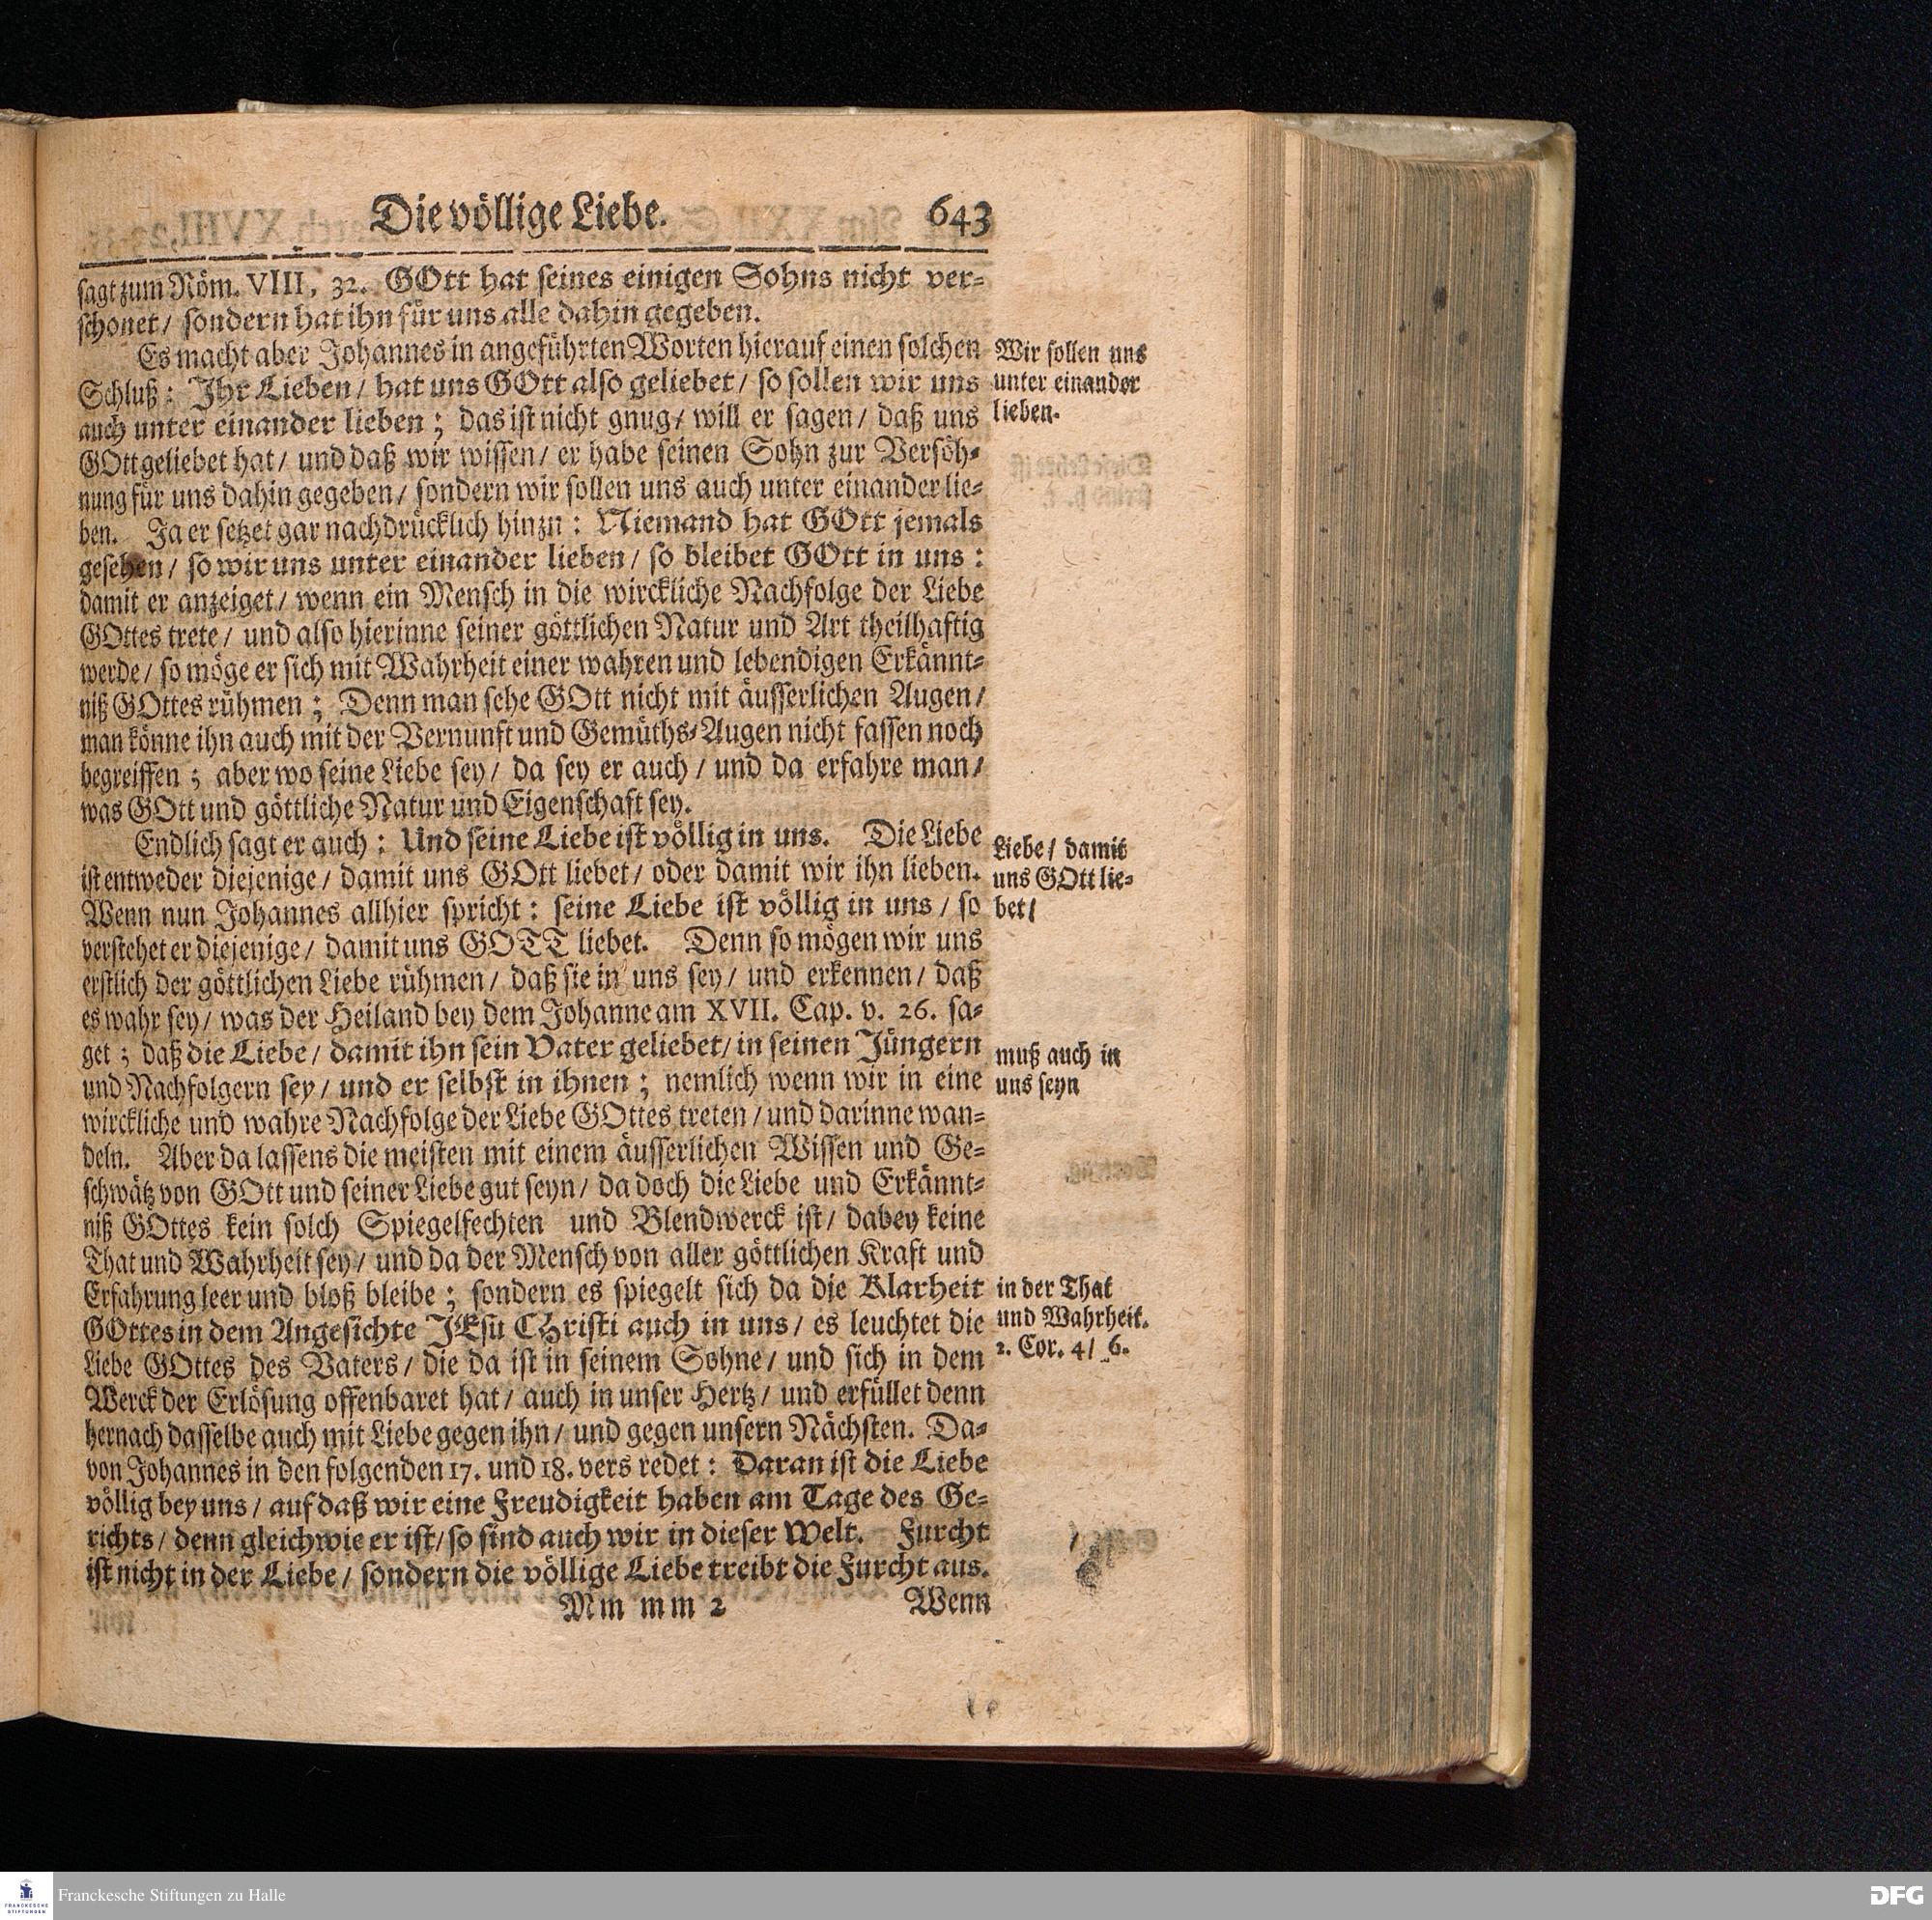 Die völlige Liebe. 643
sagt zum Röm. VIII, 32. GOtt hat seines einigen Sohns nicht ver-
schonet / sondern hat ihn für uns alle dahin gegeben.
Es macht aber Johannes in angeführten Worten hierauf einen solchen
Schluß: Ihr Lieben / hat uns GOtt also geliebet / so sollen wir uns
auch unter einander lieben; das ist nicht gnug / will er sagen / daß uns
GOtt geliebet hat / und daß wir wissen / er habe seinen Sohn zur Versöh-
nung für uns dahin gegeben / sondern wir sollen uns auch unter einander lie-
ben. Ja er setzet gar nachdrücklich hinzn: Niemand hat GOtt jemals
gesehen / so wir uns unter einander lieben / so bleibet GOtt in uns:
damit er anzeiget / wenn ein Mensch in die wirckliche Nachfolge der Liebe
GOttes trete / und also hierinne seiner göttlichen Natur und Art theilhaftig
werde / so möge er sich mit Wahrheit einer wahren und lebendigen Erkännt-
niß GOttes rühmen; Denn man sehe GOtt nicht mit äusserlichen Augen /
man könne ihn auch mit der Vernunft und Gemüths-Augen nicht fassen noch
begreiffen; aber wo seine Liebe sey / da sey er auch / und da erfahre man /
was GOtt und göttliche Natur und Eigenschaft sey.
Endlich sagt er auch: Und seine Liebe ist völlig in uns. Die Liebe
ist entweder diejenige / damit uns GOtt liebet / oder damit wir ihn lieben.
Wenn nun Johannes allhier spricht: seine Liebe ist völlig in uns / so
verstehet er diejenige / damit uns GOTT liebet. Denn so mögen wir uns
erstlich der göttlichen Liebe rühmen / daß sie in uns sey / und erkennen / daß
es wahr sey / was der Heiland bey dem Johanne am XVII. Cap. v. 26. sa-
get; daß die Liebe / damit ihn sein Vater geliebet / in seinen Jüngern
und Nachfolgern sey / und er selbst in ihnen; nemlich wenn wir in eine
wirckliche und wahre Nachfolge der Liebe GOttes treten / und darinne wan-
deln. Aber da lassens die meisten mit einem äusserlichen Wissen und Ge-
schwätz von GOtt und seiner Liebe gut seyn / da doch die Liebe und Erkännt-
niß GOttes kein solch Spiegelfechten und Blendwerck ist / dabey keine
That und Wahrheit sey / und da der Mensch von aller göttlichen Kraft und
Erfahrung leer und bloß bleibe; sondern es spiegelt sich da die Klarheit
GOttes in dem Angesichte JEsu CHristi auch in uns / es leuchtet die
Liebe GOttes des Vaters / die da ist in seinem Sohne / und sich in dem
Werck der Erlösung offenbaret hat / auch in unser Hertz / und erfüllet denn
hernach dasselbe auch mit Liebe gegen ihn / und gegen unsern Nächsten. Da-
von Johannes in den folgenden 17. und 18. vers redet: Daran ist die Liebe
völlig bey uns / auf daß wir eine Freudigkeit haben am Tage des Ge-
richts / denn gleichwie er ist / so sind auch wir in dieser Welt. Furcht
ist nicht in der Liebe / sondern die völlige Liebe treibt die Furcht aus.
Mm mm 2 Wenn
Wir sollen uns
unter einander
lieben.
Liebe / damit
uns GOtt lie-
bet /
muß auch in
uns seyn
in der That
und Wahrheit.
2. Cor. 4 / 6.
FRANCKESCHE
STIFTUNGEN
Franckesche Stiftungen zu Halle
DFG